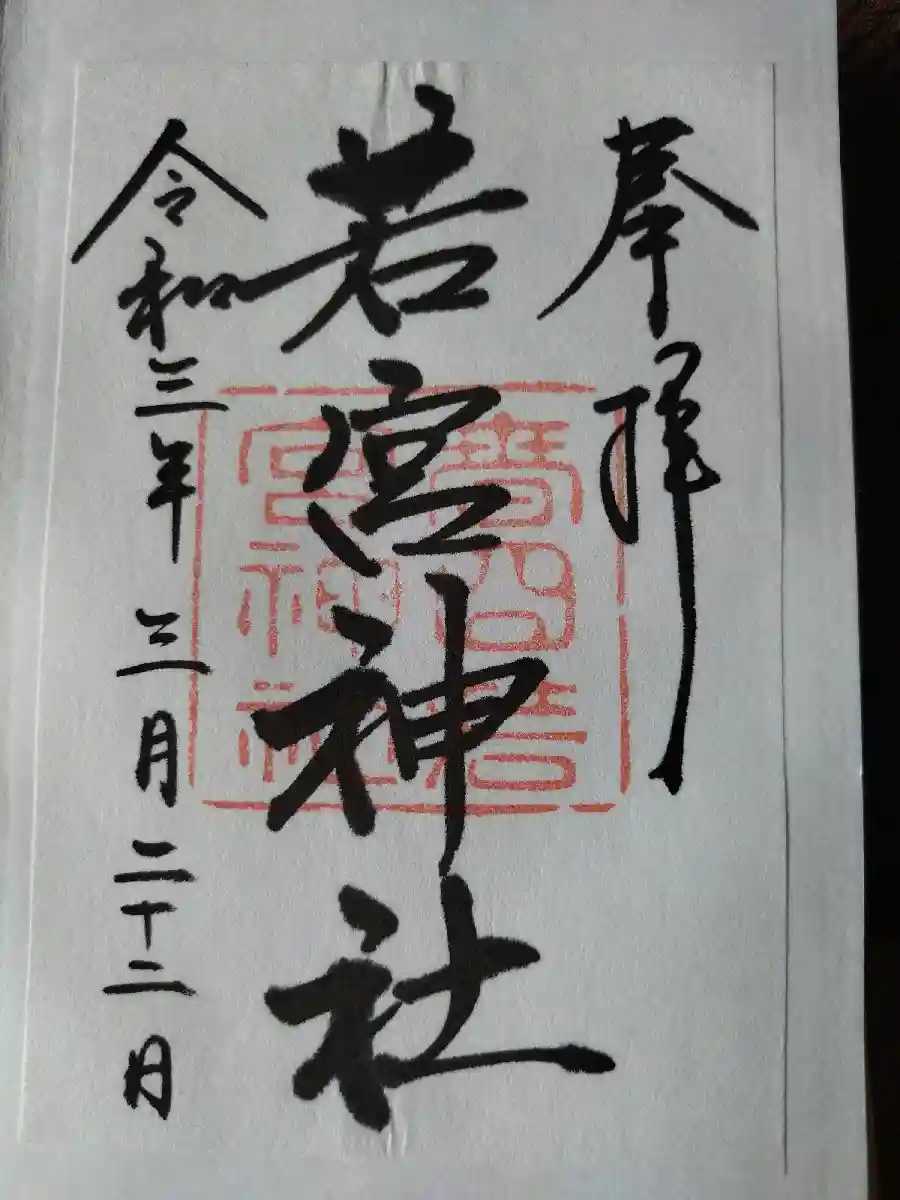 奉拝
若宮神社
令和三年三月二十二日
若
宮神社